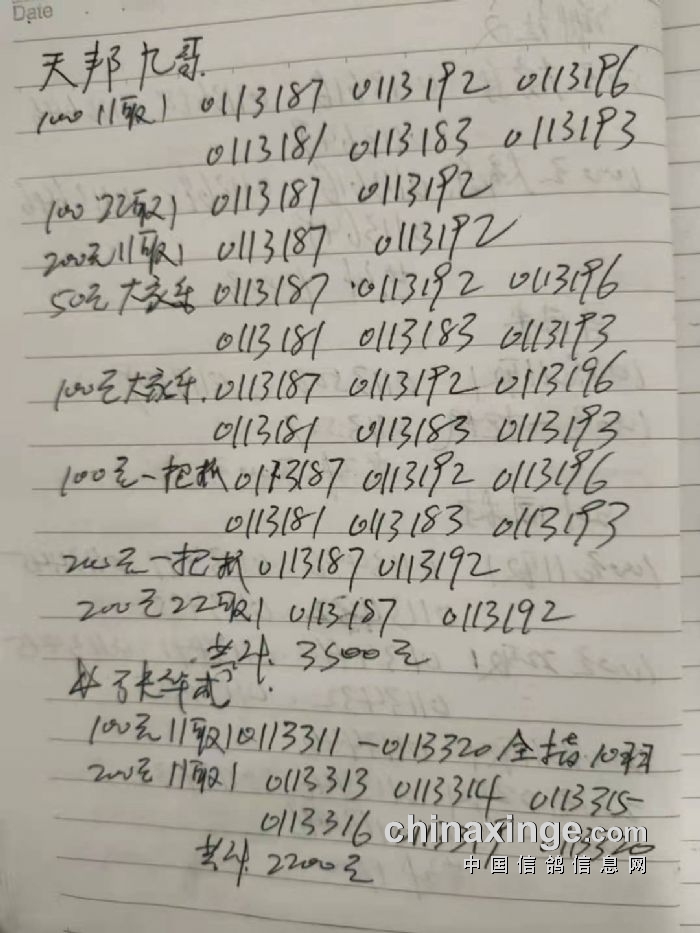 Date
天邦九哥.
100 11取1 0113187 0113192 0113196
0113181 0113183 0113193
100 22取1 0113187 0113192
200元11取1 0113187 0113192
50元大家乐 0113187 0113192 0113196
0113181 0113183 0113193
100元大家乐. 0113187 0113192 0113196
0113181 0113183 0113193
100元一把抓 0113187 0113192 0113196
0113181 0113183 0113193
200元一把抓 0113187 0113192
200元22取1 0113187 0113192
共计. 3500元
100元11取1 0113311-0113320全指10羽
200元11取1 0113313 0113314 0113315
0113316 0113320
chinaxinge.com
中国信鸽信息网
共计. 2200元